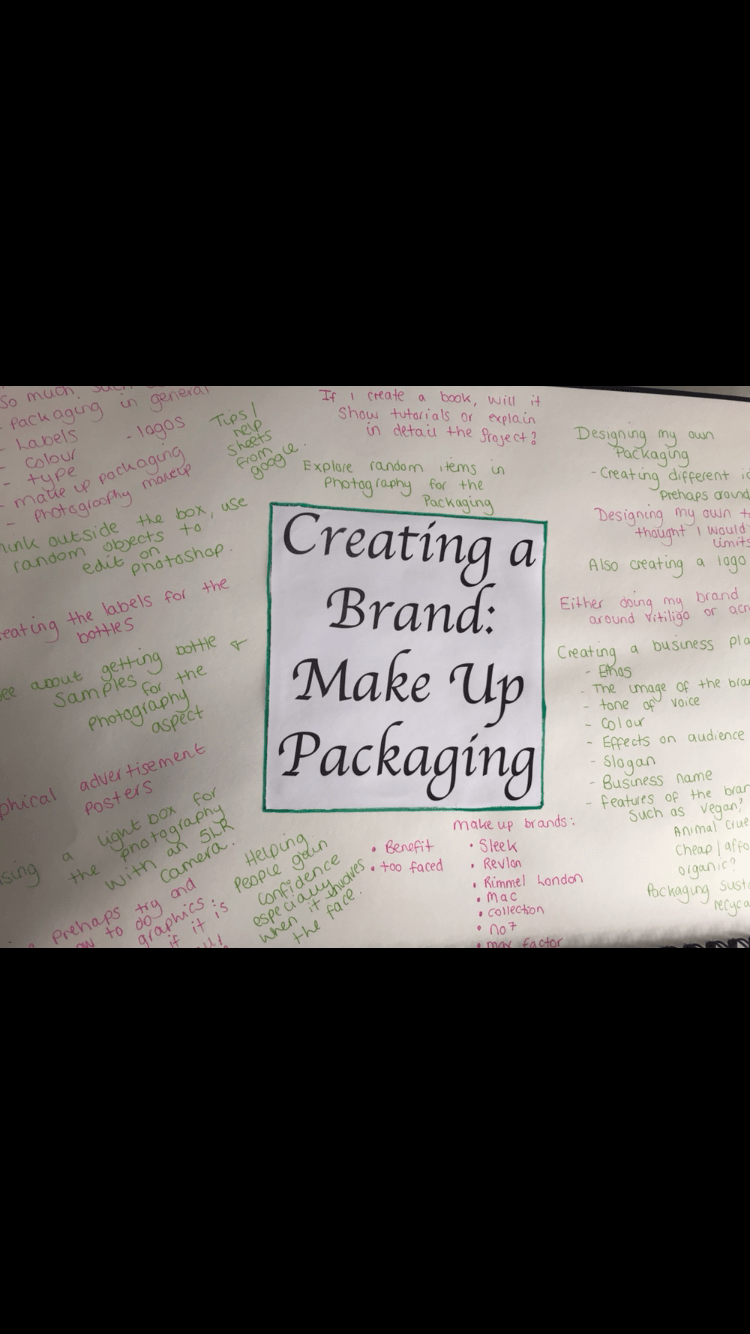 So much, such
- Packaging in general
- Labels
- logos
- colour
- type
- make up packaging
- photography makeup
Tips/
help
sheets
from
google.
If I create a book, will it
show tutorials or explain
in detail the project?
Explore random items in
Photography for the
Packaging
outside the box, use
random objects to
edit on
photoshop.
the labels for the
bottles
about getting bottle
samples for the
photography
aspect
advertisement
Posters
a light box for
the photography
with an SLR
camera.
Prehaps try and
to do
graphics:
if it is
Helping
People gain
confidence
especially
when it involves
the face.
Creating a
Brand:
Make Up
Packaging
• Benefit
• too faced
make up brands:
• Sleek
• Revlon
• Rimmel London
• Mac
• collection
• no7
• max factor
Designing my own
Packaging
- Creating different
Prehaps around
Designing my own
thought I would
limits
Also creating a logo
Either doing my brand
around vitiligo or
Creating a business
- Ethos
- The image of the
- tone of voice
- Colour
- Effects on audience
- Slogan
- Business name
- features of the
Such as vegan?
Animal
cheap/
organic?
Packaging